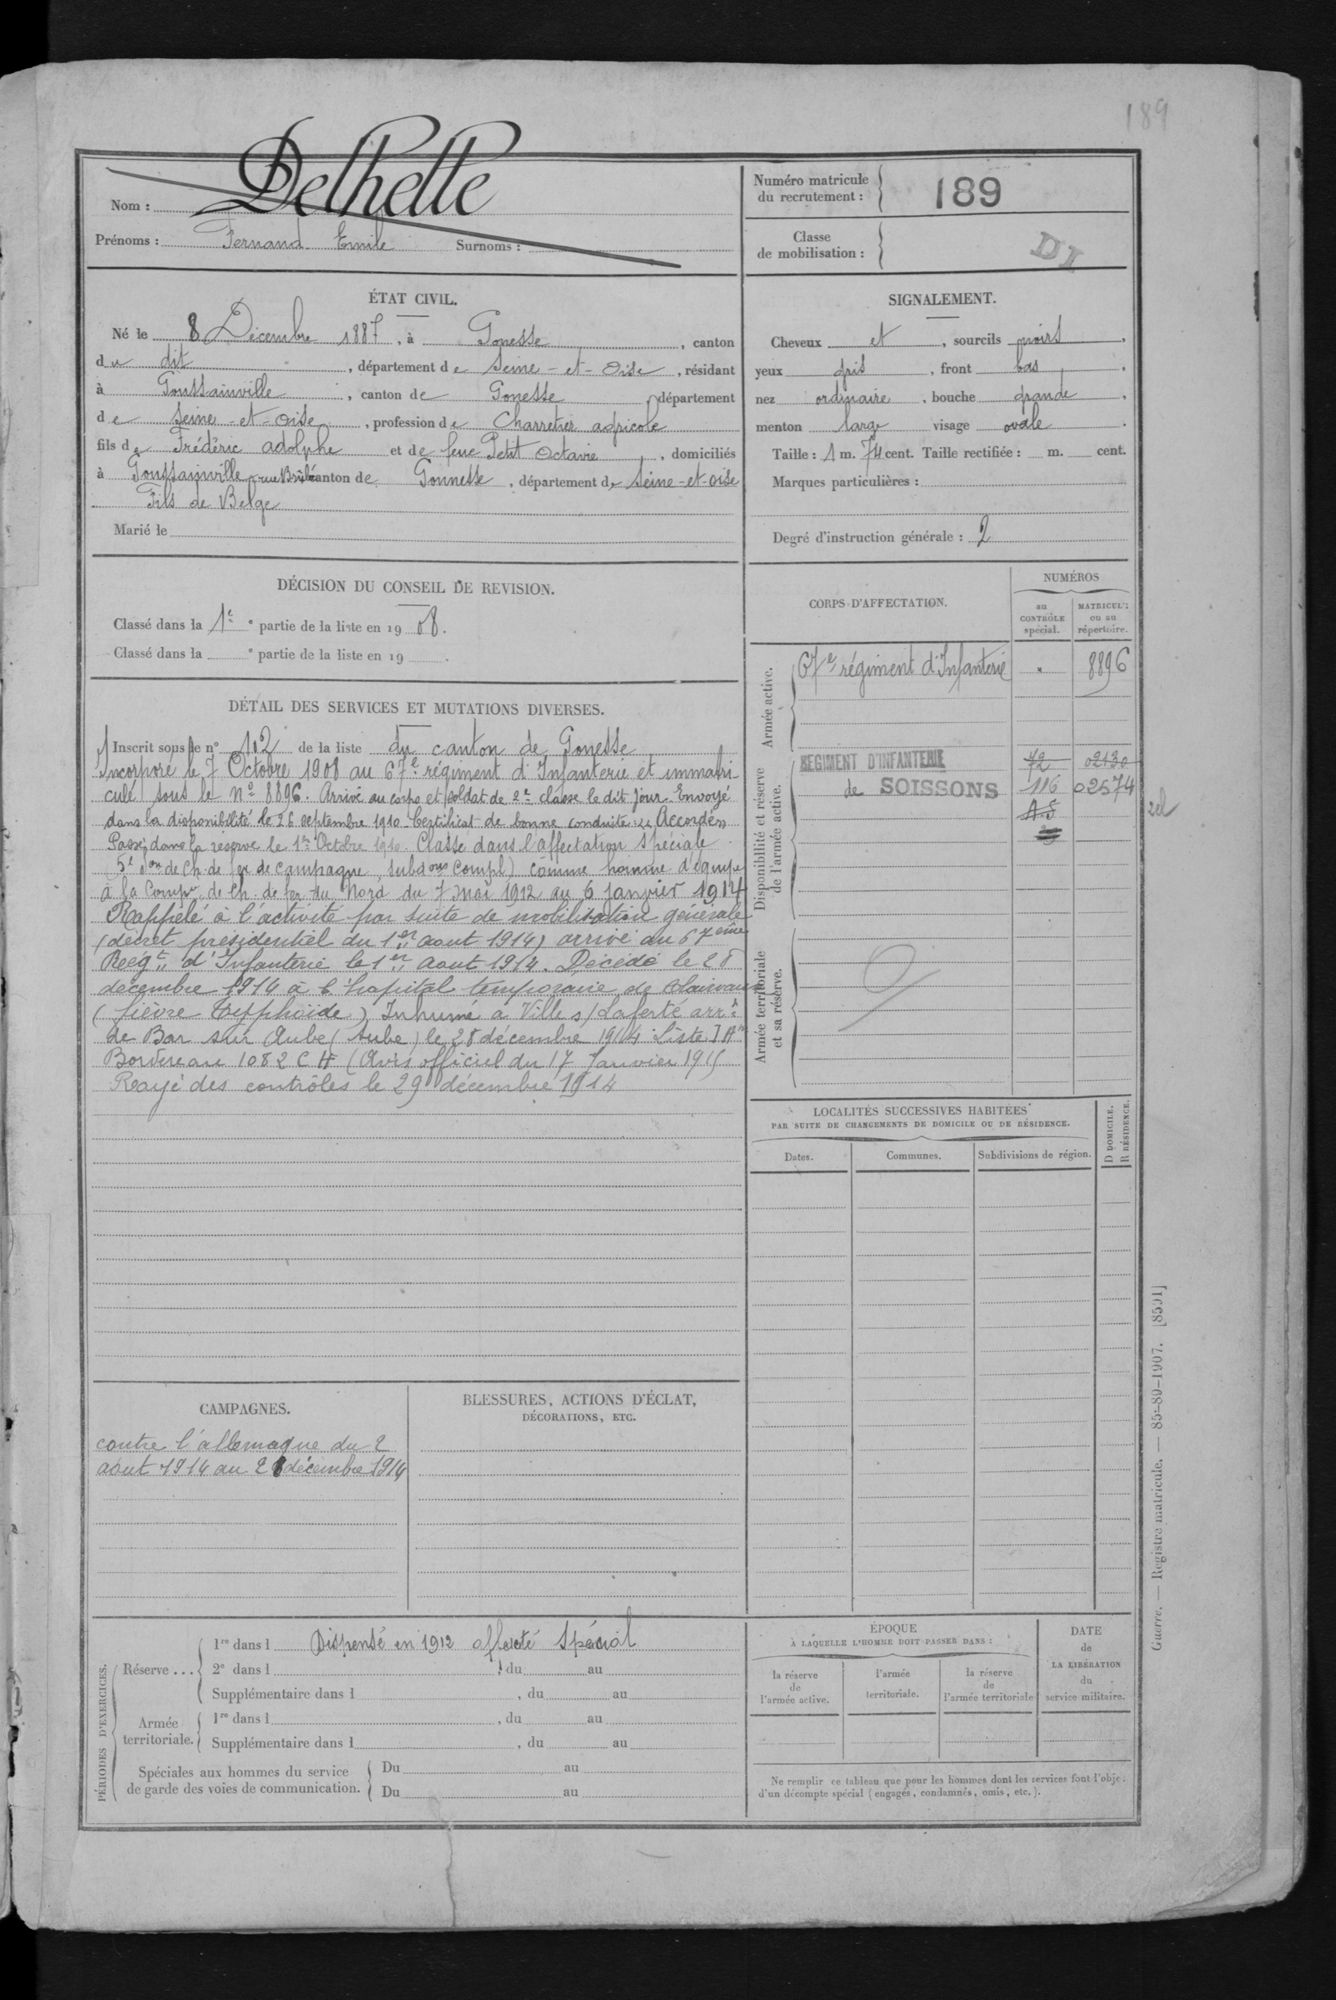 189
Nom : Delhelle
Prénoms : Fernand Emile Surnoms :
Numéro matricule
du recrutement : 189
Classe
de mobilisation :
DI
ÉTAT CIVIL.
Né le 8 Décembre 1887, à Gonesse, canton
du dit, département de Seine-et-Oise, résidant
à Goussainville, canton de Gonesse, département
de Seine-et-Oise, profession de Charretier agricole
fils de Frédéric adolphe et de feue Petit Octavie, domiciliés
à Goussainville rue Brulé canton de Gonnesse, département de Seine-et-oise
Fils de Belge
Marié le
SIGNALEMENT.
Cheveux et, sourcils noirs,
yeux gris, front bas,
nez ordinaire, bouche grande,
menton large visage ovale.
Taille : 1 m. 74 cent. Taille rectifiée : m. cent.
Marques particulières :
Degré d'instruction générale : 2
DÉCISION DU CONSEIL DE REVISION.
Classé dans la 1e partie de la liste en 1908.
Classé dans la e partie de la liste en 19 .
DÉTAIL DES SERVICES ET MUTATIONS DIVERSES.
Inscrit sous le n° 102 de la liste du canton de Gonesse
Incorporé le 7 Octobre 1908 au 67e régiment d'Infanterie et immatri
culé sous le No 8896. Arrivé au corps et soldat de 2e classe le dit jour. Envoyé
dans la disponibilité le 26 septembre 1910. Certificat de bonne conduite Accordé
Passé dans la réserve le 1er Octobre 1910. Classé dans l'affectation spéciale
5e son de Ch. de fer de campagne, subdons compl) comme homme d'équipe
à la Compie de Ch. de fer du Nord du 7 mai 1912 au 6 janvier 1914
Rappelé à l'activité par suite de mobilisation générale
(décret présidentiel du 1er aout 1914) arrivé au 67eme
Reegt d'Infanterie le 1er Aout 1914. Décédé le 28
décembre 1914 à l'hopital temporaire de Clairvaux
(fièvre Typphoïde) Inhumé a Ville s/ Laferté arrt
de Bar sur Aube (Aube) le 28 décembre 1914 Liste
Bordereau 1082 CH (Avis officiel du 17 Janvier 1915
Rayé des contrôles le 29 décembre 1914
CORPS D'AFFECTATION.
NUMÉROS
au
CONTRÔLE
spécial.
MATRICULE
ou au
répertoire.
Armée active.
67e régiment d'Infanterie " 8896
Disponibilité et réserve
de l'armée active.
REGIMENT D'INFANTERIE 72 02130
de SOISSONS 116 02574
AS
Armée territoriale
et sa réserve.
LOCALITÉS SUCCESSIVES HABITÉES
PAR SUITE DE CHANGEMENTS DE DOMICILE OU DE RÉSIDENCE.
Dates. Communes. Subdivisions de région.
D DOMICILE.
R RÉSIDENCE.
CAMPAGNES.
contre l'allemagne du 2
aout 1914 au 28 décembre 1914
BLESSURES, ACTIONS D'ÉCLAT,
DÉCORATIONS, ETC.
PÉRIODES D'EXERCICES.
Réserve ...
1re dans l Dispensé en 1912 affecté spécial
2e dans l , du au
Supplémentaire dans l , du au
Armée
territoriale.
1re dans l , du au
Supplémentaire dans l , du au
Spéciales aux hommes du service
de garde des voies de communication.
Du au
Du au
ÉPOQUE
À LAQUELLE L'HOMME DOIT PASSER DANS :
la réserve
de
l'armée active.
l'armée
territoriale.
la réserve
de
l'armée territoriale
DATE
de
LA LIBÉRATION
du
service militaire.
Ne remplir ce tableau que pour les hommes dont les services font l'objet
d'un décompte spécial (engagés, condamnés, omis, etc.).
Guerre. — Registre matricule. — 85-89-1907. [8501]